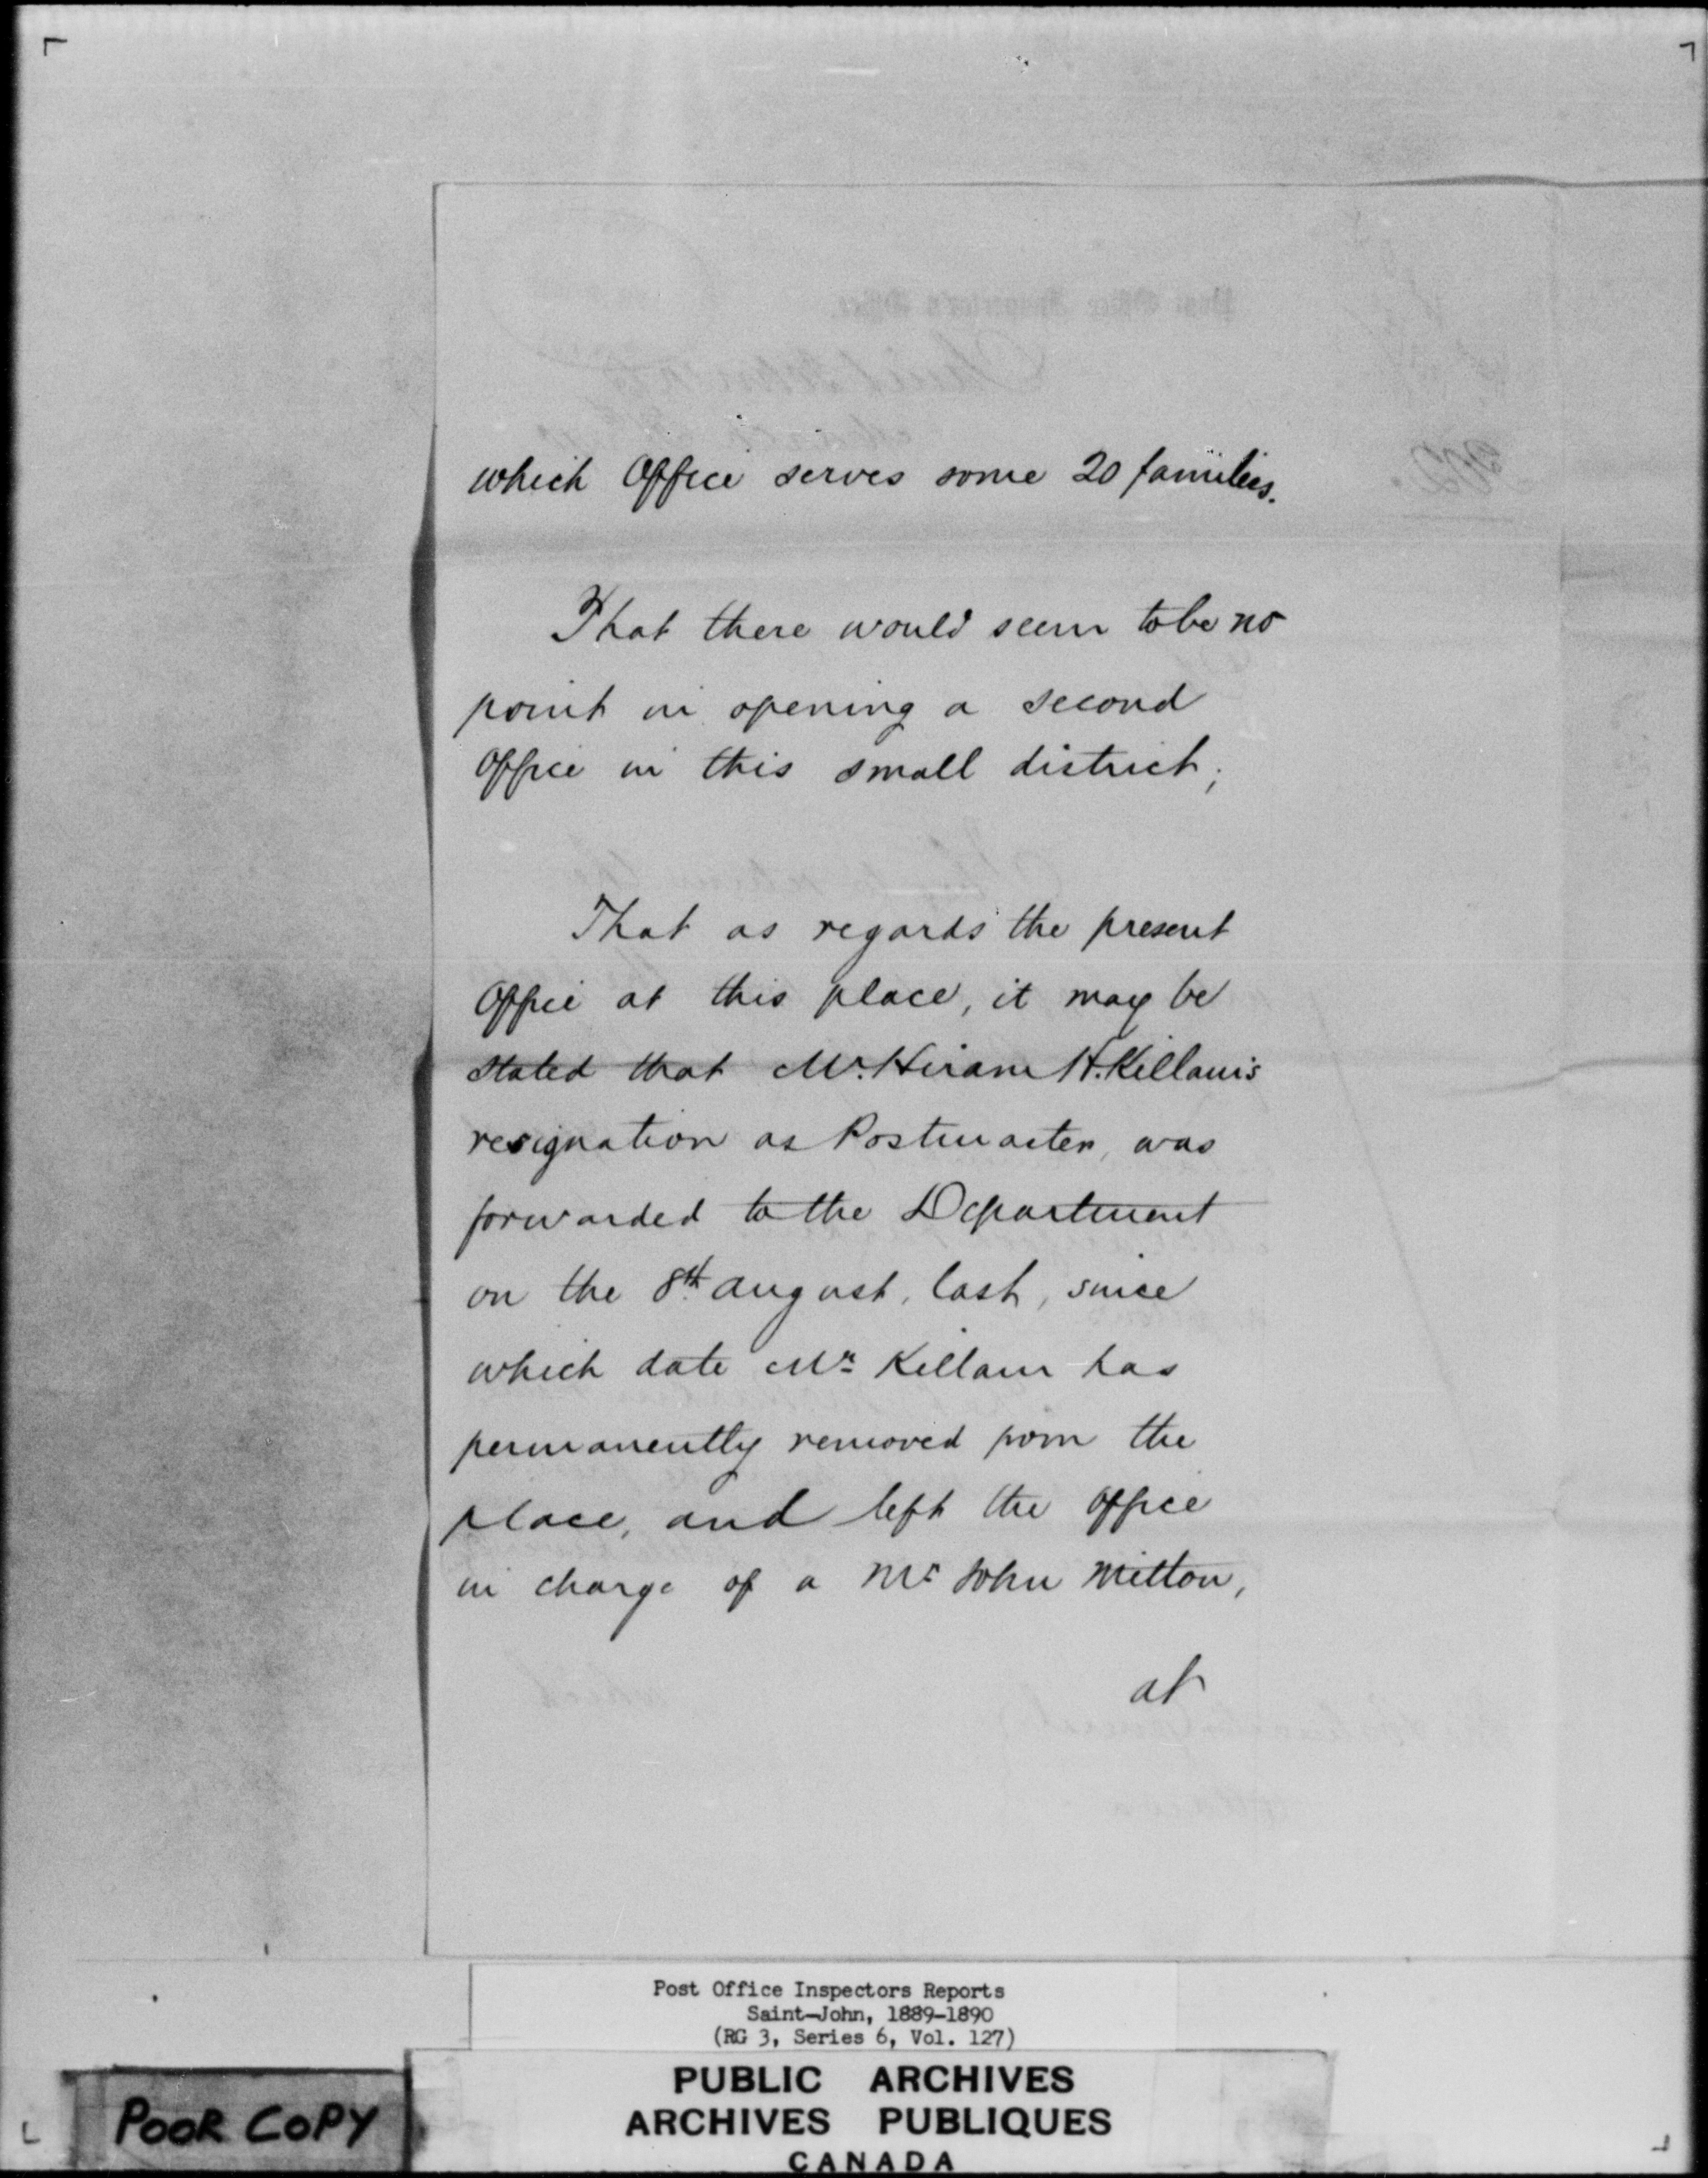 which Office serves some 20 families.
That there would seem to be no
point in opening a second
Office in this small district;
That as regards the present
Office at this place, it may be
stated that Mr. Hiram H. Killam's
resignation as Postmaster, was
forwarded to the Department
on the 8th August, last, since
which date Mr Killam has
permanently removed from the
place, and left the Office
in charge of a Mr John Mitton,
at
Post Office Inspectors Reports
Saint-John, 1889-1890
(RG 3, Series 6, Vol. 127)
PUBLIC ARCHIVES
ARCHIVES PUBLIQUES
CANADA
POOR COPY